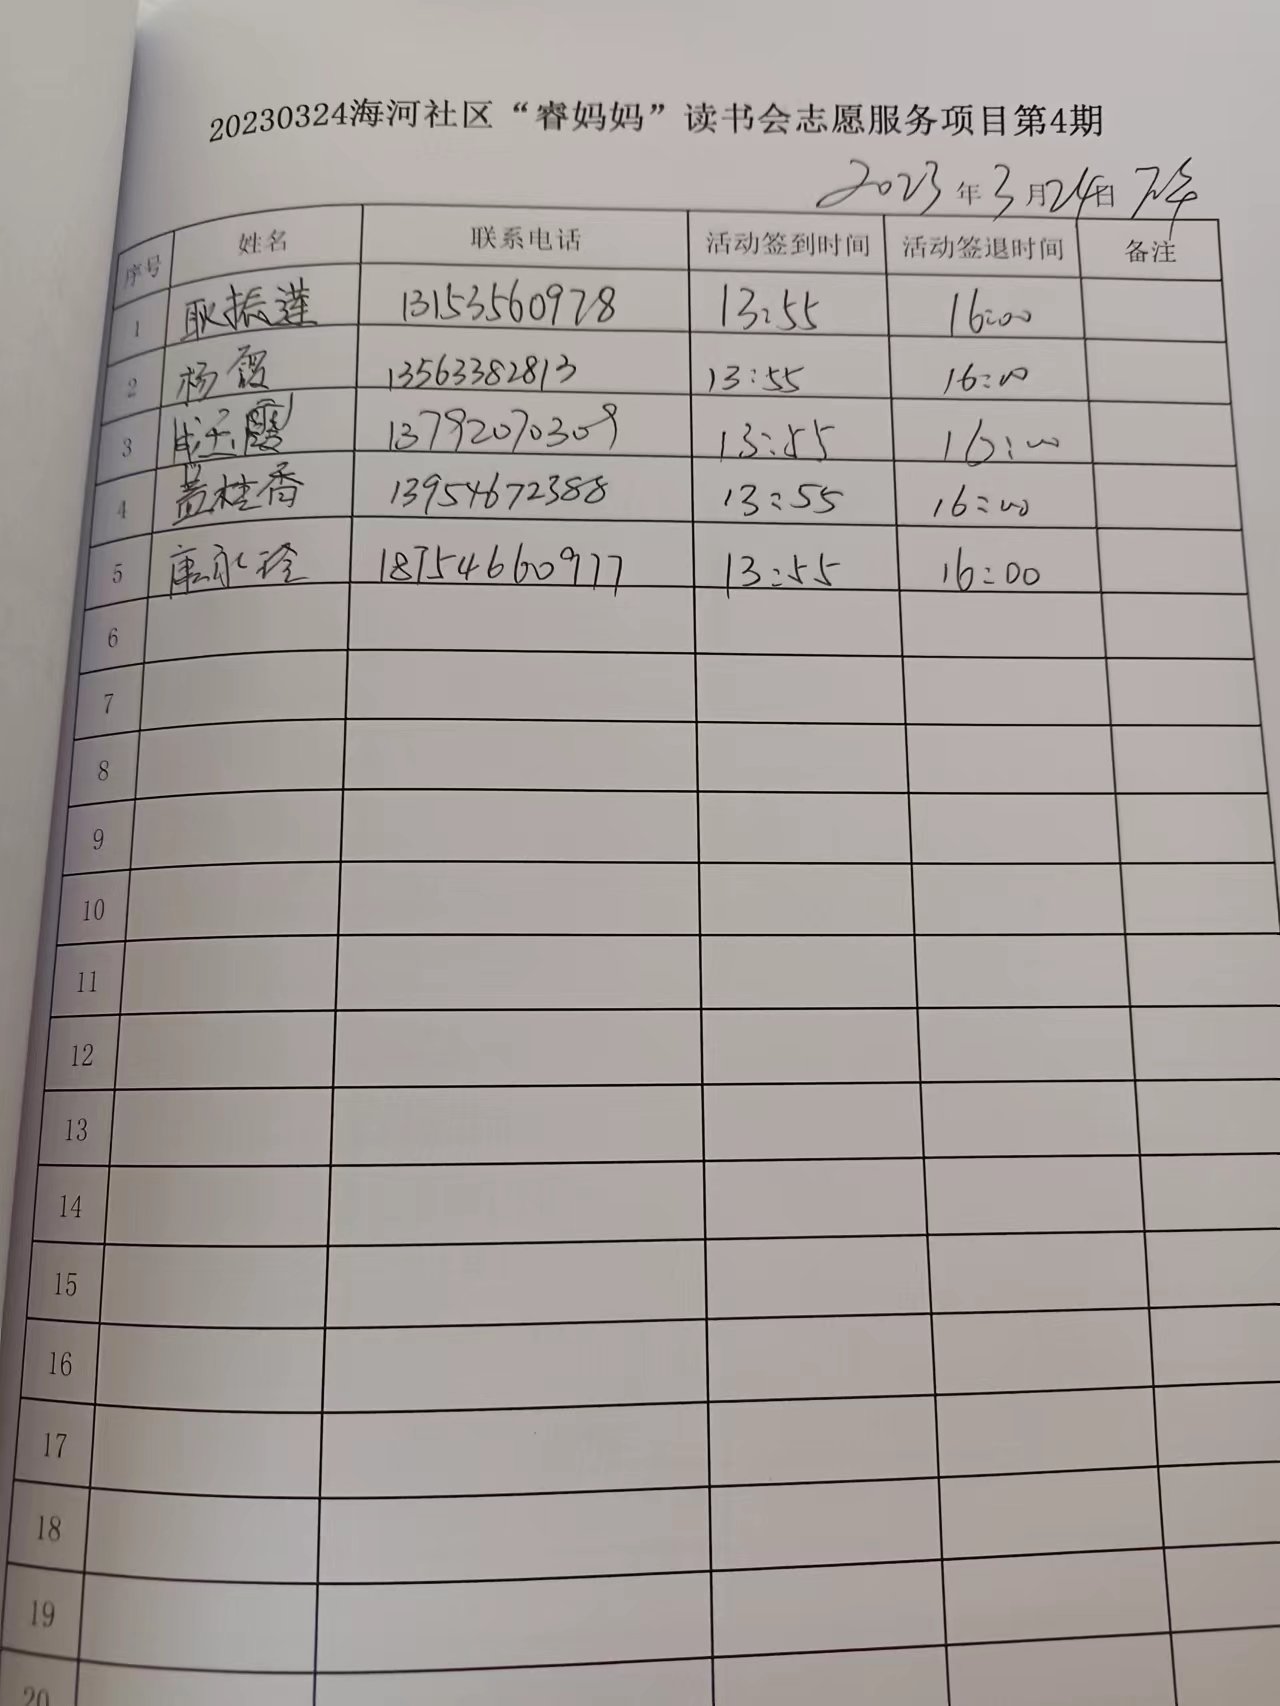 20230324海河社区“睿妈妈”读书会志愿服务项目第4期
2023年3月24日 下午
序号 姓名 联系电话 活动签到时间 活动签退时间 备注
1 耿振莲 13153560978 13:55 16:00
2 杨霞 13563382813 13:55 16:00
3 成玉霞 13792070309 13:55 16:00
4 盖桂香 13954672388 13:55 16:00
5 唐永玲 18754660977 13:55 16:00
6
7
8
9
10
11
12
13
14
15
16
17
18
19
20